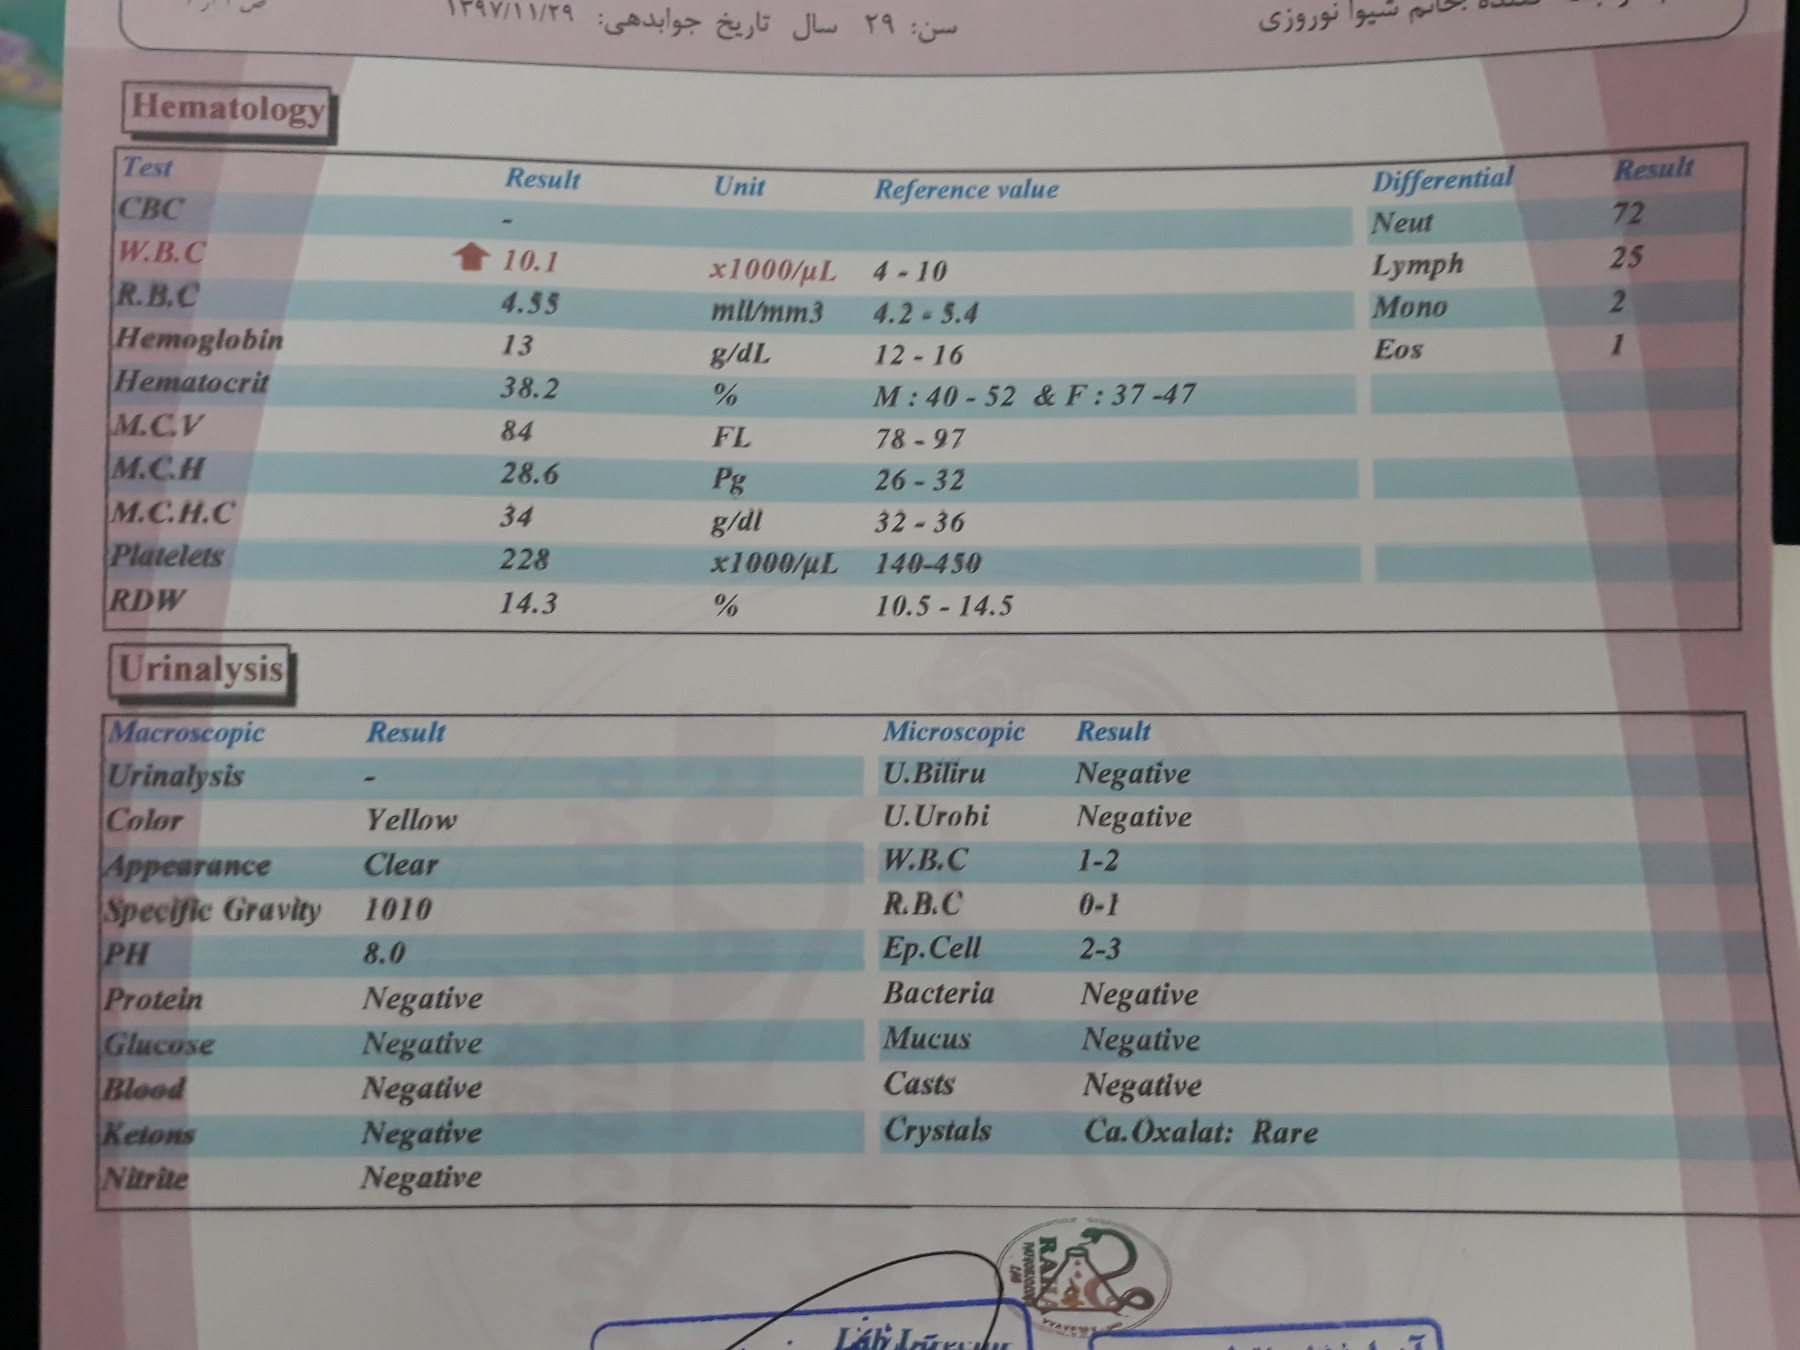 خانم شیوا نوروزی سن: ۲۹ سال تاریخ جوابدهی: ۱۳۹۷/۱۱/۲۹
Hematology
Test Result Unit Reference value Differential Result
CBC - Neut 72
W.B.C 10.1 x1000/µL 4 - 10 Lymph 25
R.B.C 4.55 mll/mm3 4.2 - 5.4 Mono 2
Hemoglobin 13 g/dL 12 - 16 Eos 1
Hematocrit 38.2 % M : 40 - 52 & F : 37 -47
M.C.V 84 FL 78 - 97
M.C.H 28.6 Pg 26 - 32
M.C.H.C 34 g/dl 32 - 36
Platelets 228 x1000/µL 140-450
RDW 14.3 % 10.5 - 14.5
Urinalysis
Macroscopic Result Microscopic Result
Urinalysis - U.Biliru Negative
Color Yellow U.Urobi Negative
Appearance Clear W.B.C 1-2
Specific Gravity 1010 R.B.C 0-1
PH 8.0 Ep.Cell 2-3
Protein Negative Bacteria Negative
Glucose Negative Mucus Negative
Blood Negative Casts Negative
Ketons Negative Crystals Ca.Oxalat: Rare
Nitrite Negative
Lab